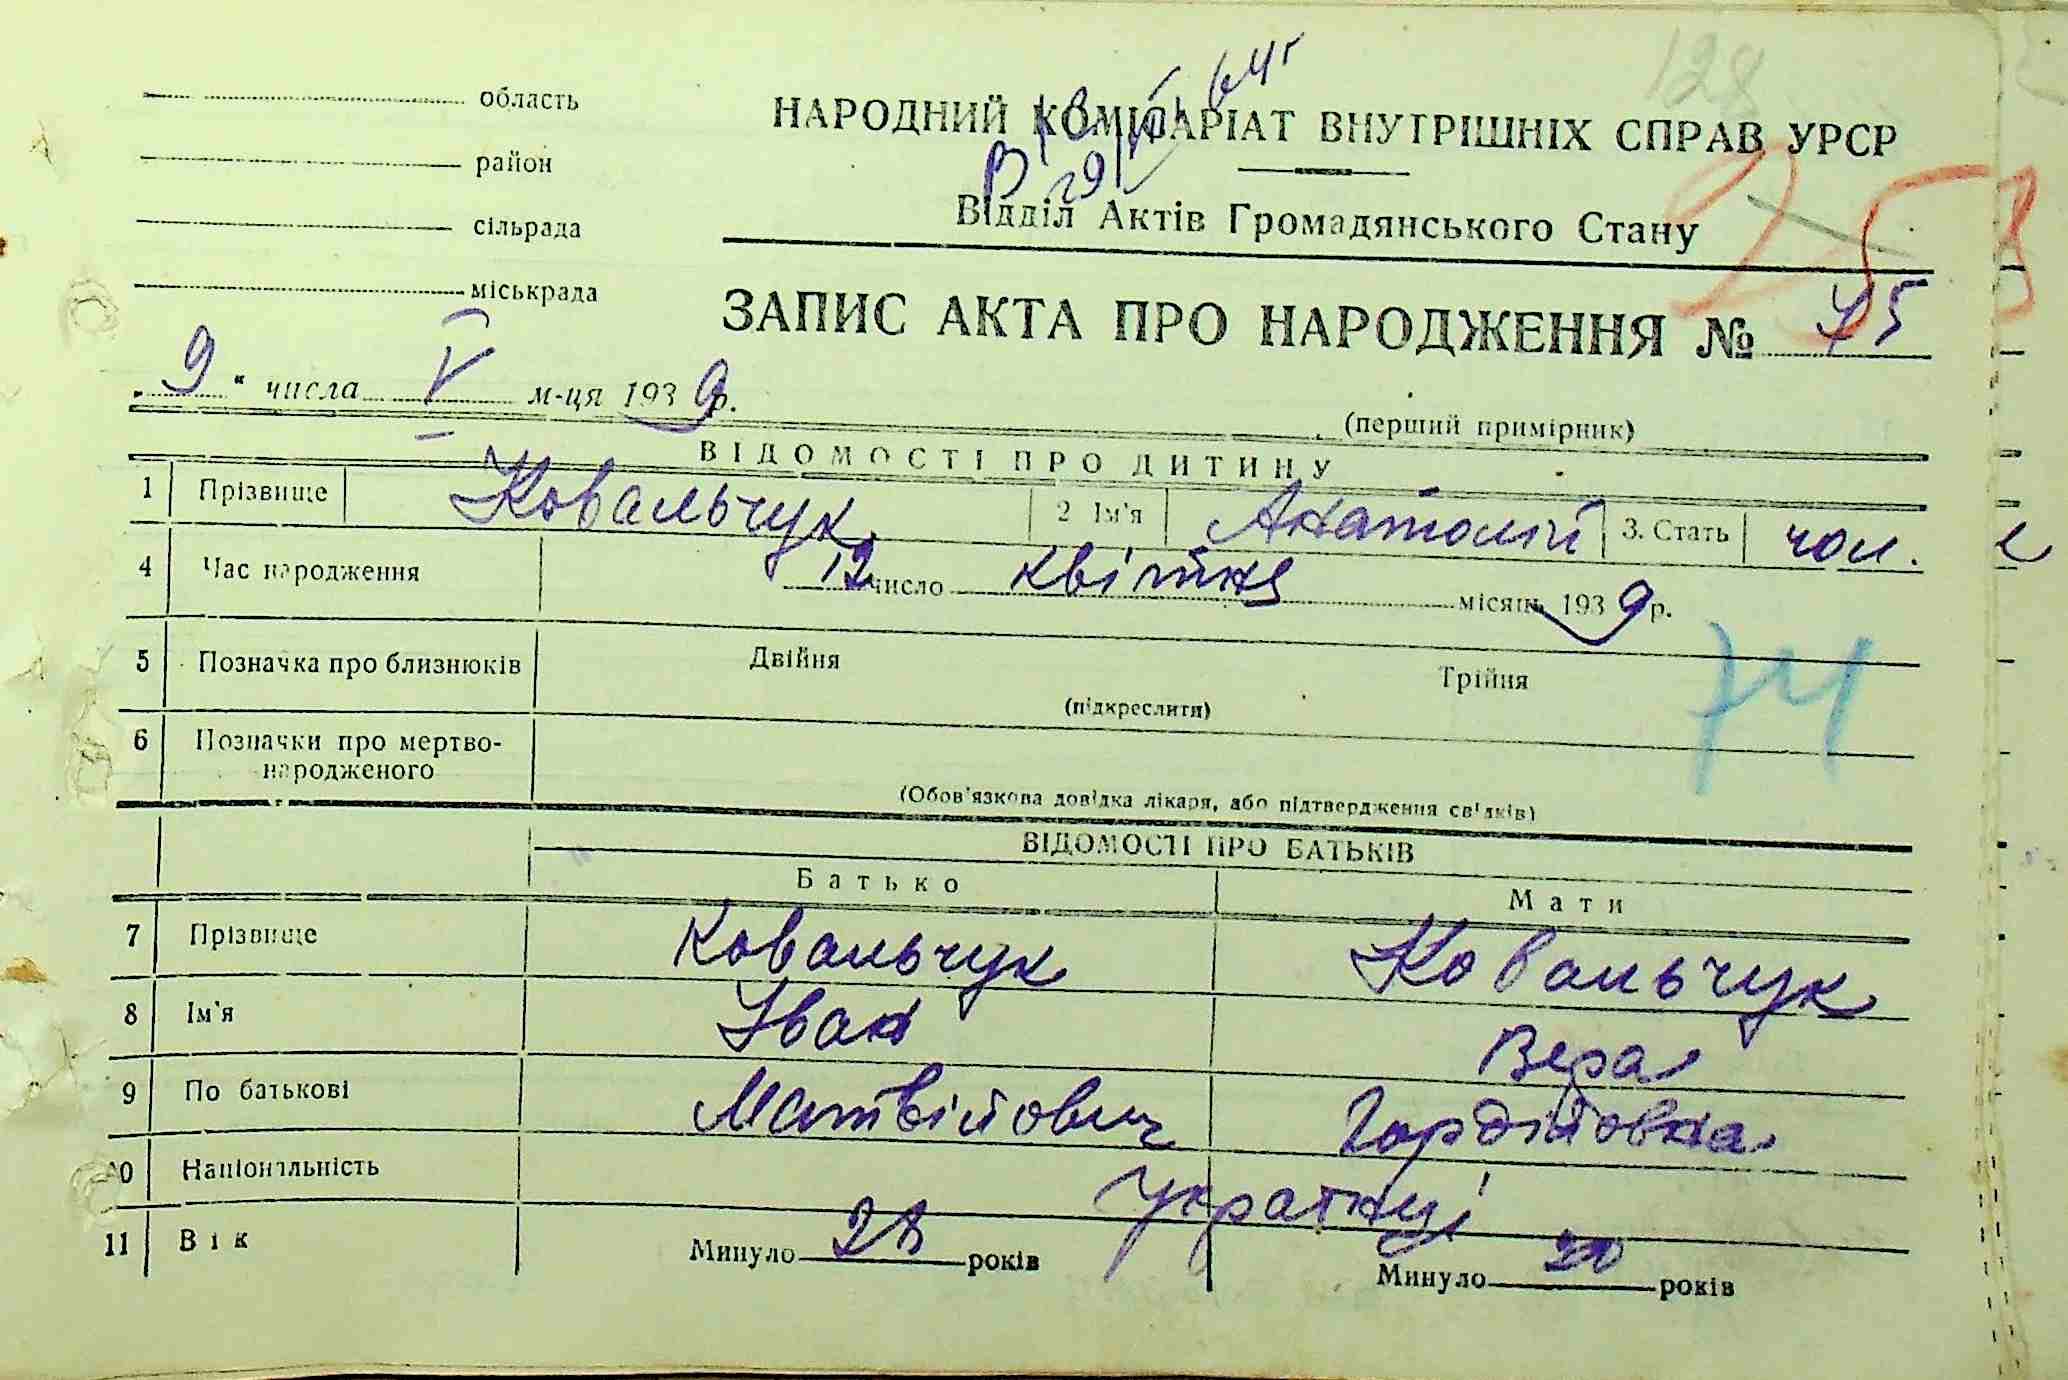 128
область
НАРОДНИЙ КОМІСАРІАТ ВНУТРІШНІХ СПРАВ УРСР
район
253
Відділ Актів Громадянського Стану
сільрада
міськрада
ЗАПИС АКТА ПРО НАРОДЖЕННЯ № 75
„ 9 “ числа V м-ця 1939 р.
(перший примірник)
ВІДОМОСТІ ПРО ДИТИНУ
1 Прізвище Ковальчук 2 Ім'я Анатолій 3. Стать чол.
4 Час народження 12 число квітня місяць 1939 р.
5 Позначка про близнюків Двійня Трійня
(підкреслити)
74
6 Позначки про мертво-
народженого
(Обов'язкова довідка лікаря, або підтвердження свідків)
ВІДОМОСТІ ПРО БАТЬКІВ
Батько Мати
7 Прізвище Ковальчук Ковальчук
8 Ім'я Іван Вера
9 По батькові Матвійович Гордійовна
10 Національність Українці
11 Вік Минуло 28 років Минуло 20 років